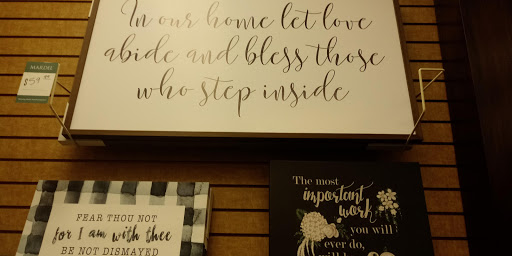 In our home let love
abide and bless those
who step inside
MARDEL
$59.99
FEAR THOU NOT
for I am with thee
BE NOT DISMAYED
The most
important
work
you will
ever do,